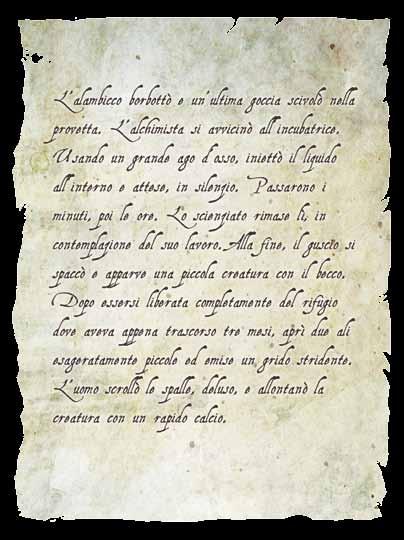 L'alambicco borbottò e un'ultima goccia scivolò nella
provetta. L'alchimista si avvicinò all'incubatrice.
Usando un grande ago d'osso, iniettò il liquido
all'interno e attese, in silenzio. Passarono i
minuti, poi le ore. Lo scienziato rimase lì, in
contemplazione del suo lavoro.Alla fine, il guscio si
spaccò e apparve una piccola creatura con il becco.
Dopo essersi liberata completamente del rifugio
dove aveva appena trascorso tre mesi, aprì due ali
esageratamente piccole ed emise un grido stridente.
L'uomo scrollò le spalle, deluso, e allontanò la
creatura con un rapido calcio.